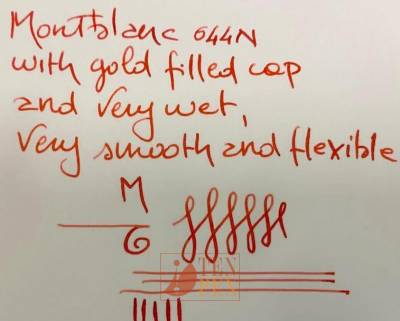 Montblanc 644N
with gold filled cap
and very wet,
very smooth and flexible
M
6
TEN
PEN